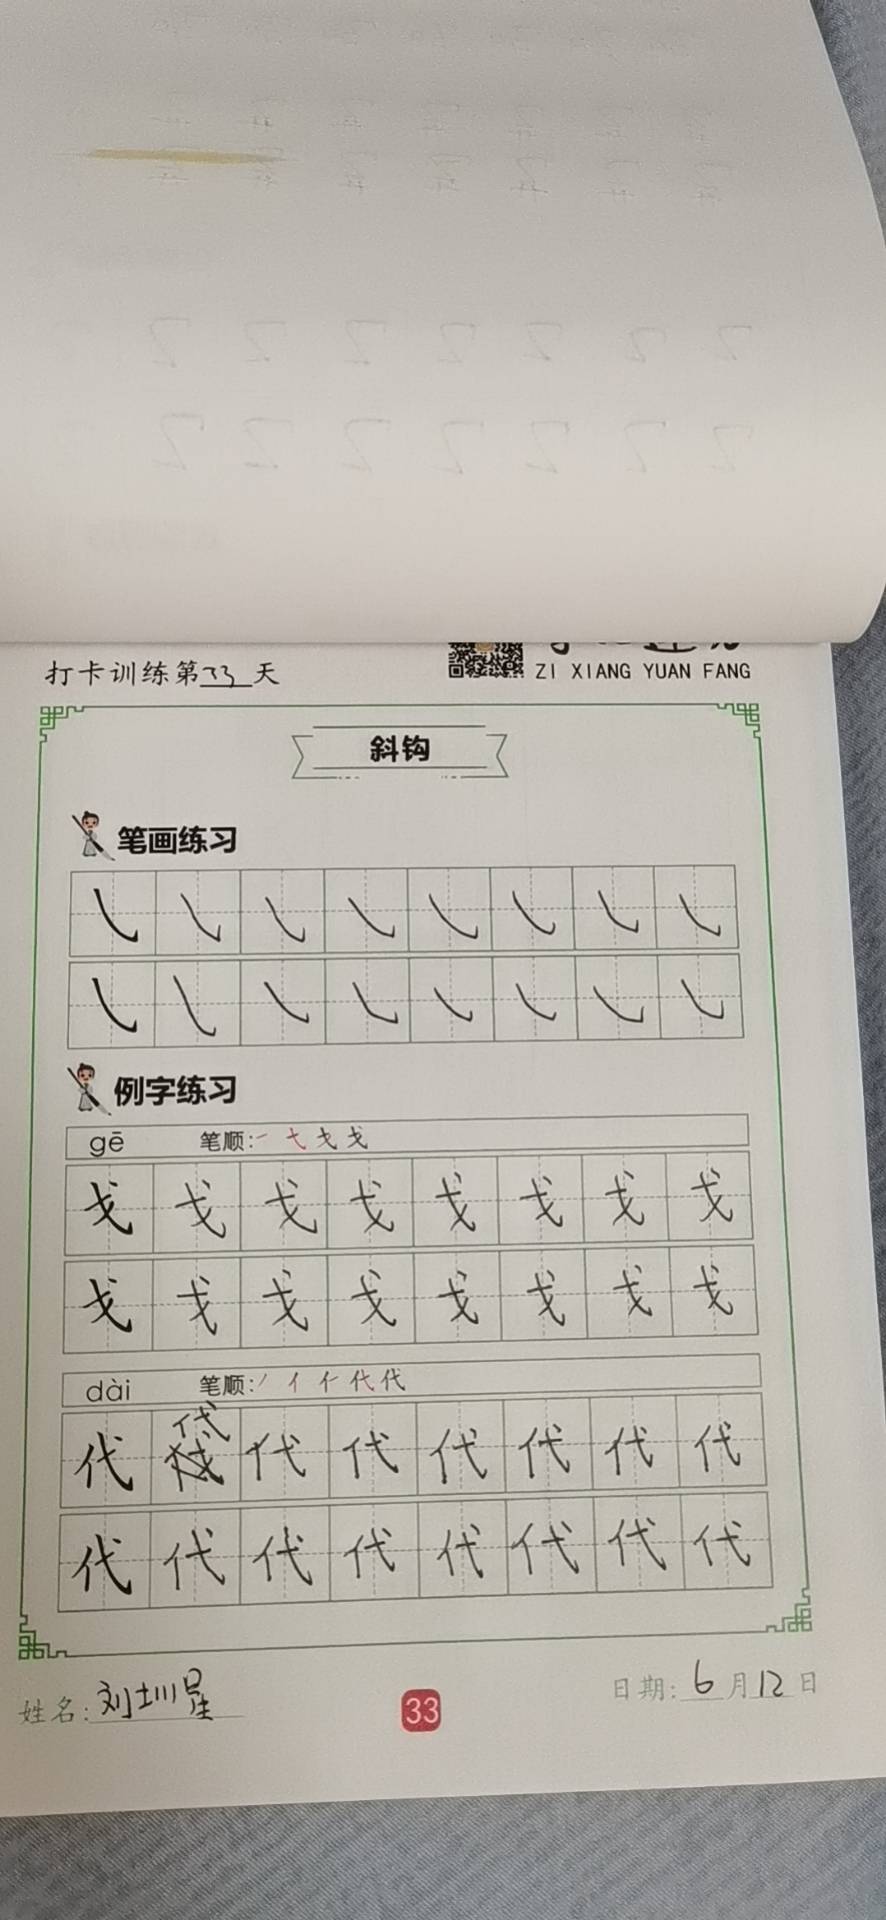 打卡训练第33天
ZI XIANG YUAN FANG
斜钩
笔画练习
㇂ ㇂ ㇂ ㇂ ㇂ ㇂ ㇂ ㇂
㇂ ㇂ ㇂ ㇂ ㇂ ㇂ ㇂ ㇂
例字练习
gē 笔顺:
戈 戈 戈 戈 戈 戈 戈 戈
戈 戈 戈 戈 戈 戈 戈 戈
dài 笔顺:
代 代 代 代 代 代 代 代
代 代 代 代 代 代 代 代
姓名:刘圳星 33 日期:6月12日